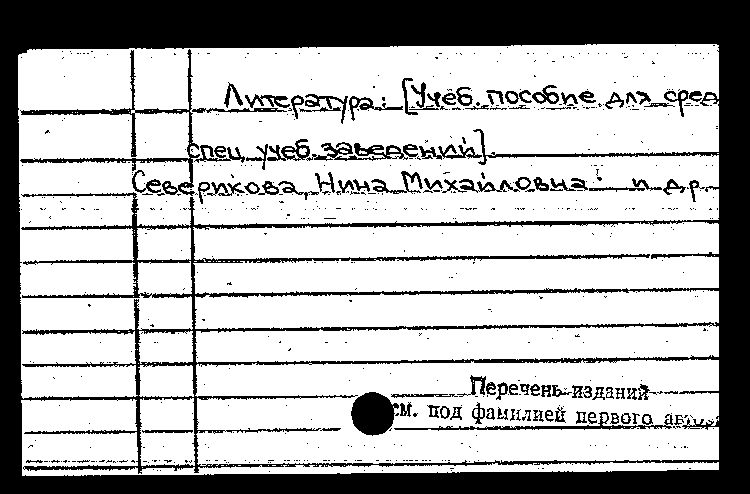 Литература: [Учеб. пособие для сред
спец. учеб. заведений].
Северикова, Нина Михайловна и др.
Перечень изданий
см. под фамилией первого автора